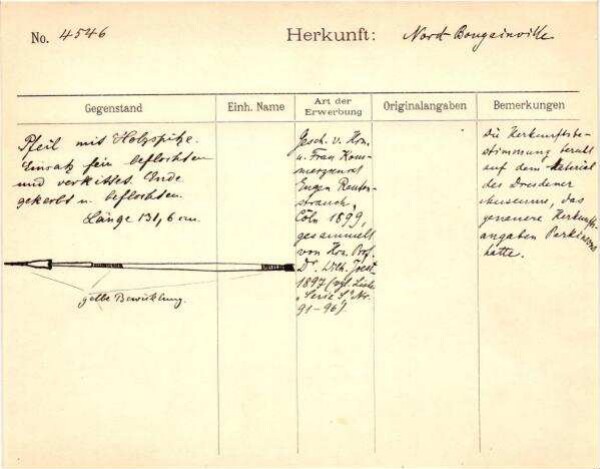 No. 4546
Herkunft: Nord Bougainville
Gegenstand
Einh. Name
Art der
Erwerbung
Originalangaben
Bemerkungen
Pfeil mit Holzspitze.
Einsatz fein beflochten
und verkittet. Ende
gekerbt u. beflochten.
Länge 131,6 cm.
gelbe Bewicklung.
Gesch. v. Hrn.
u. Frau Kom-
merzienrat
Eugen Rauten-
strauch,
Cöln 1899,
gesammelt
von Hrn. Prof.
Dr. Wilh. Joest
1897 (vgl. Liste
"Serie S" Nr.
91-96).
Die Herkunftsbe-
stimmung beruht
auf dem Material
des Dresdener
Museums, das
genauere Herkunfts-
angaben Parkinsons
hatte.